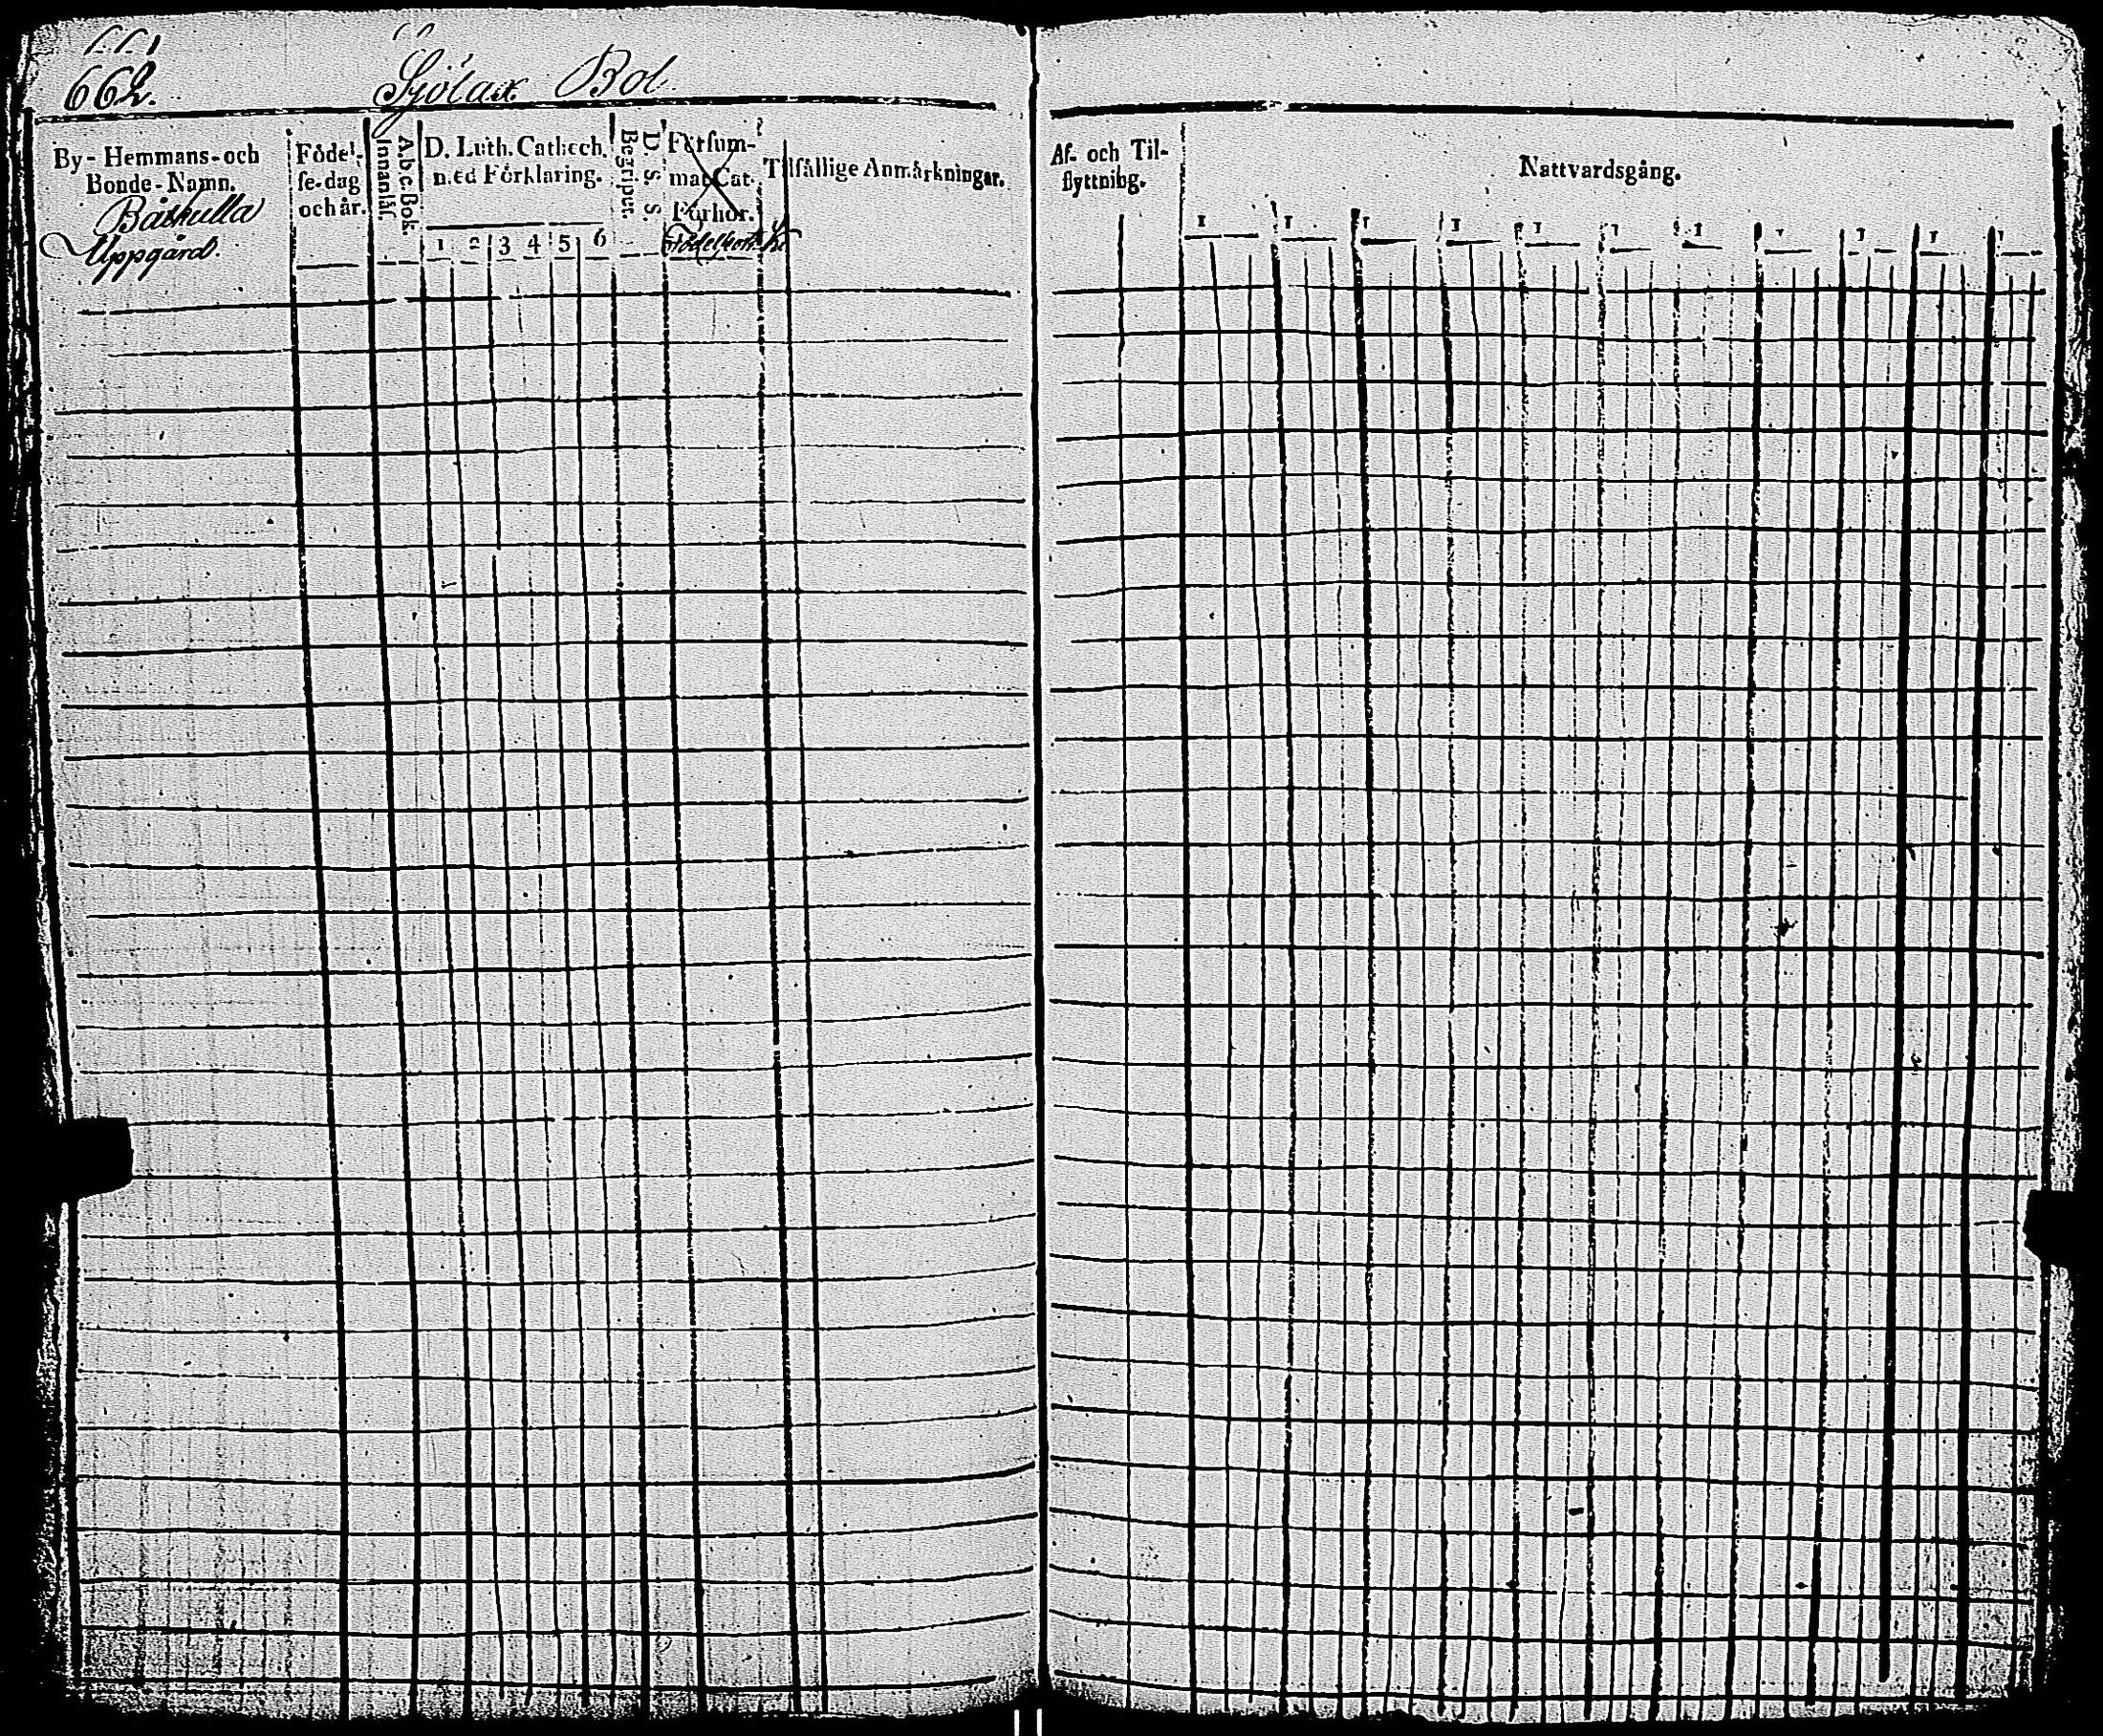 662.
Sjölax Bol
By- Hemmans- och
Bonde-Namn.
Båskulla
Uppgård.
Födel-
se-dag
och år.
A.b.c. Bok.
Innanläs.
D. Luth. Cathech.
med Förklaring.
1 2 3 4 5 6
D. S. S.
Begriper.
Försum-
mat Cat.
Förhör.
Tilfällige Anmärkningar.
Af- och Til-
flyttning.
Nattvardsgång.
1 1 1 1 1 1 1 1 1 1 1